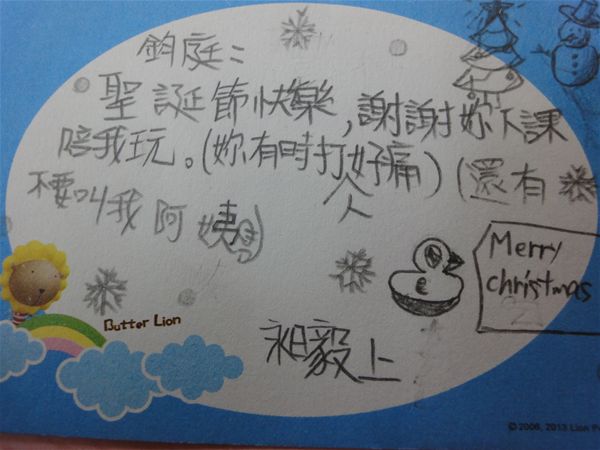 鈞庭：
聖誕節快樂，謝謝妳下課
陪我玩。(妳有時打人好痛)(還有
不要叫我阿姨)
Merry
christmas
Butter Lion
毅上
© 2006, 2013 Lion